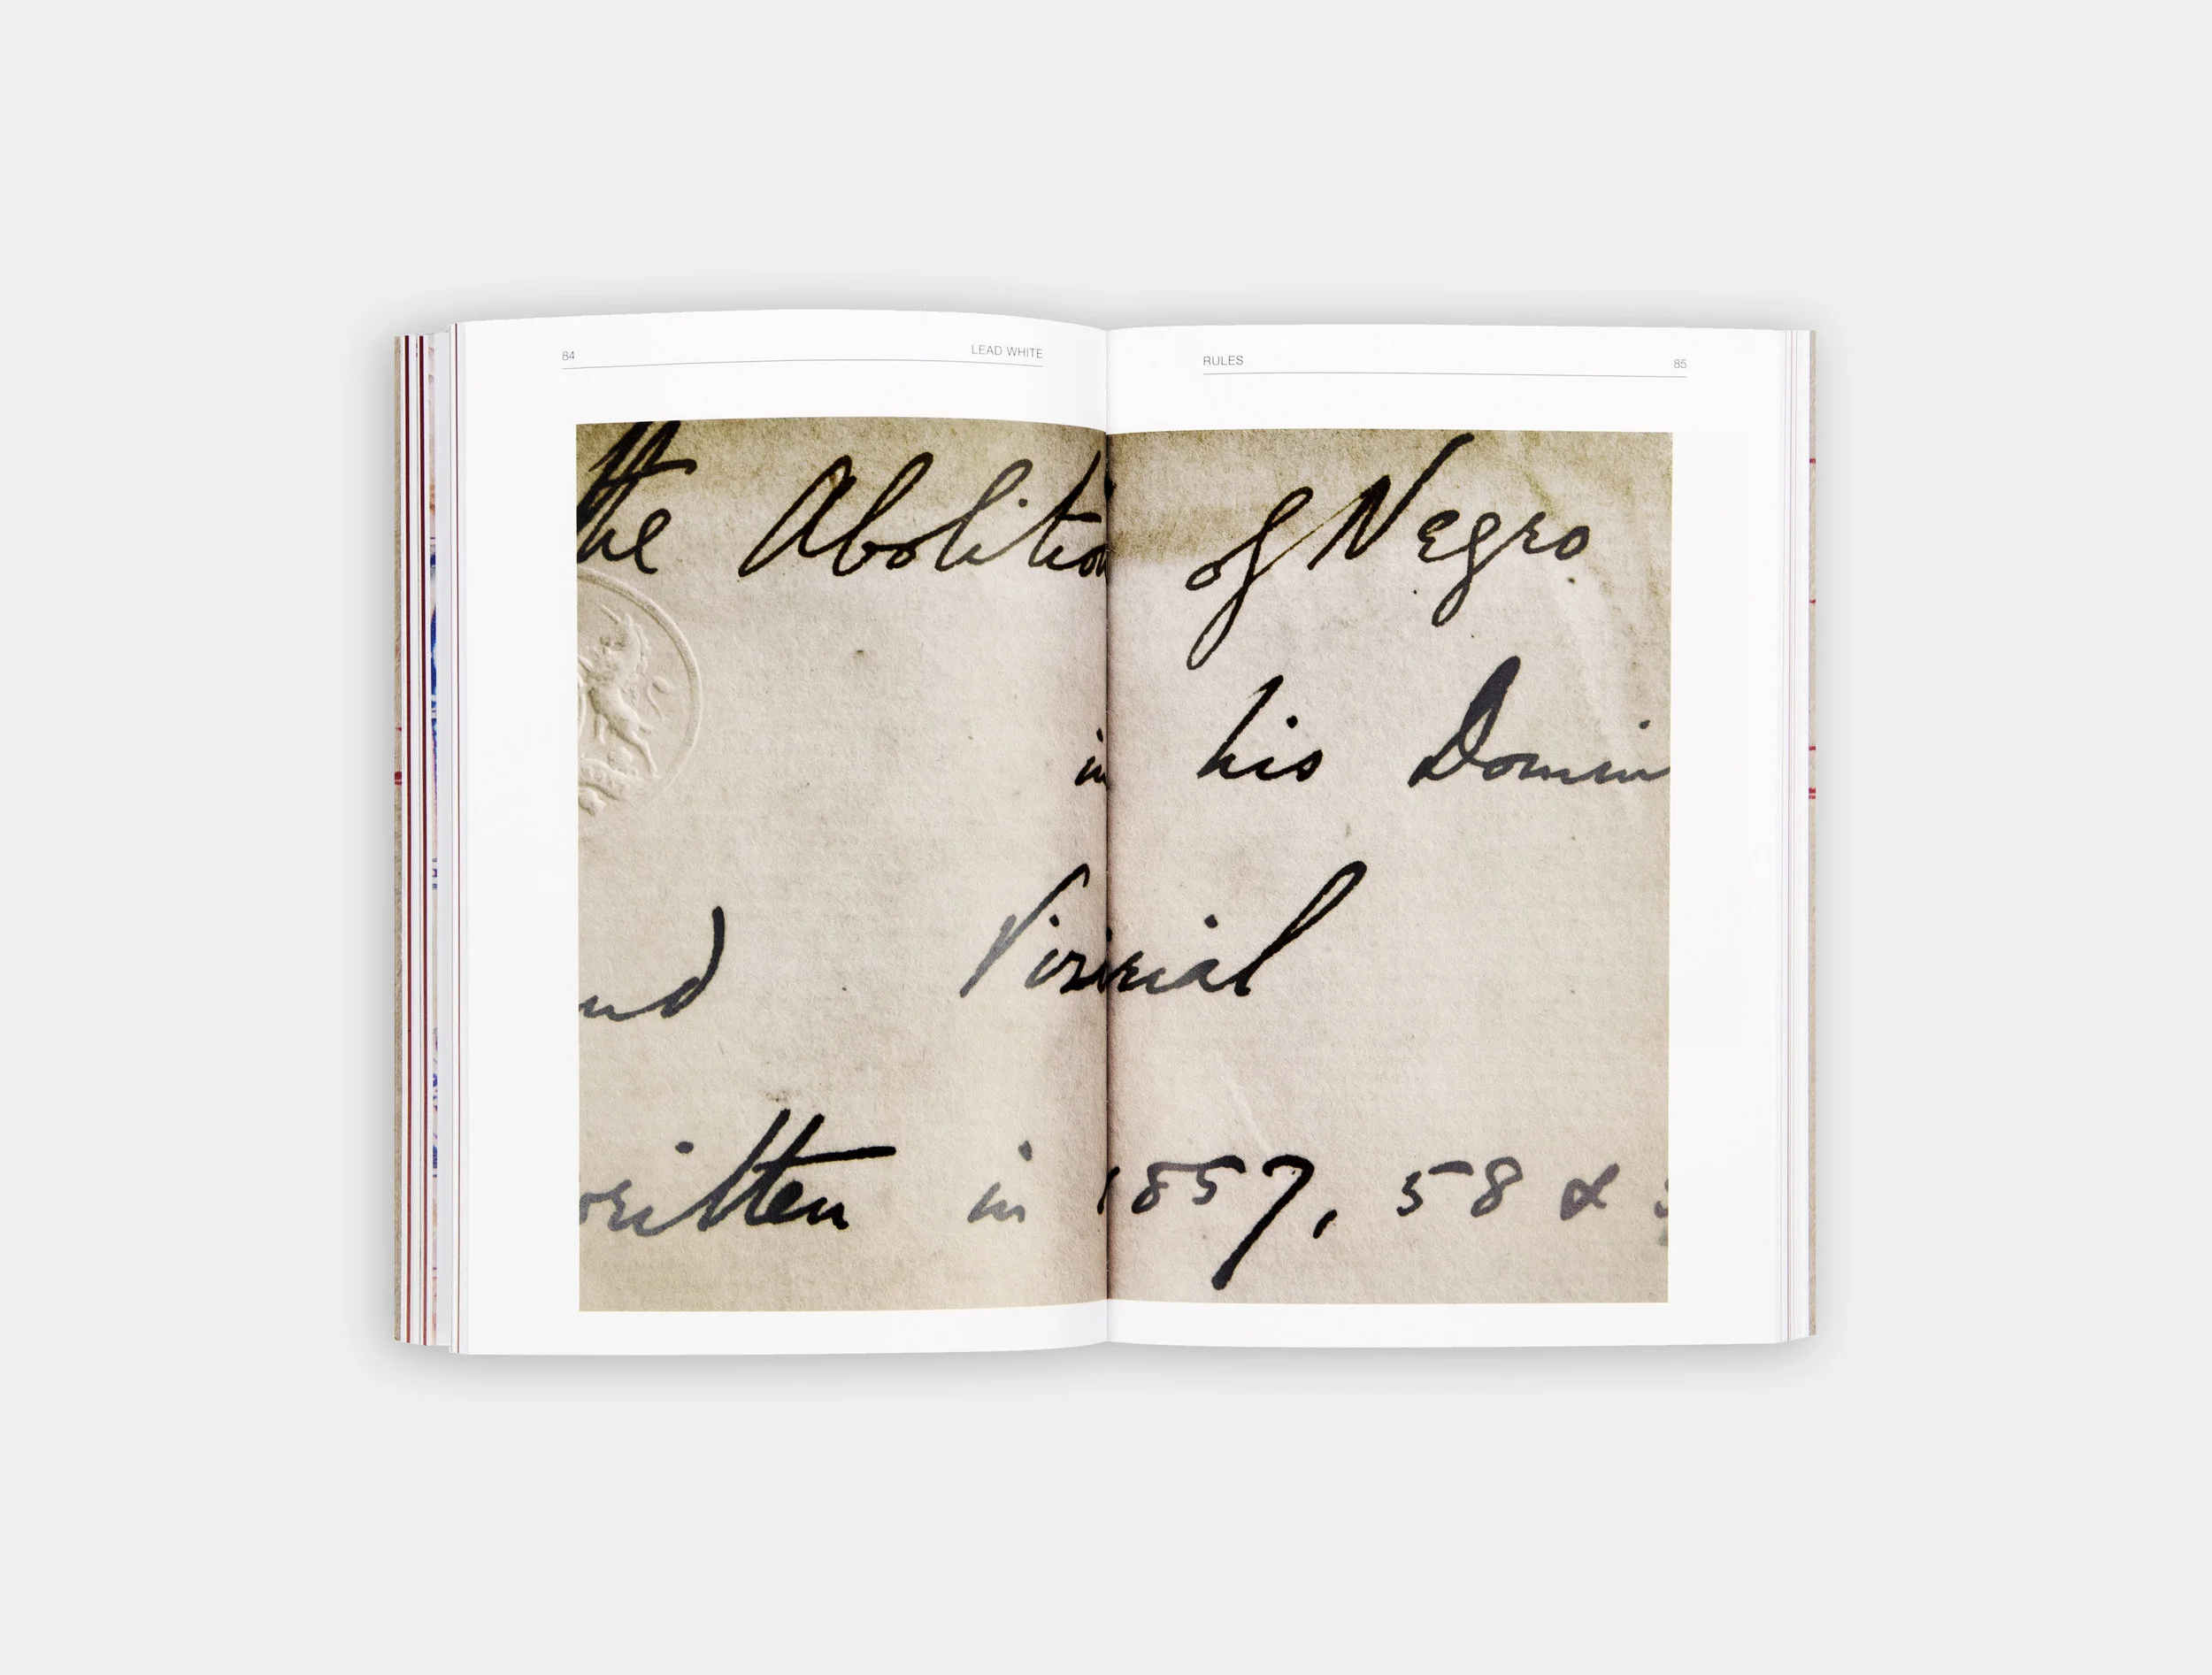 84 LEAD WHITE
RULES 85
the Abolition of Negro
in his Domin
nd
written in 1857, 58 &